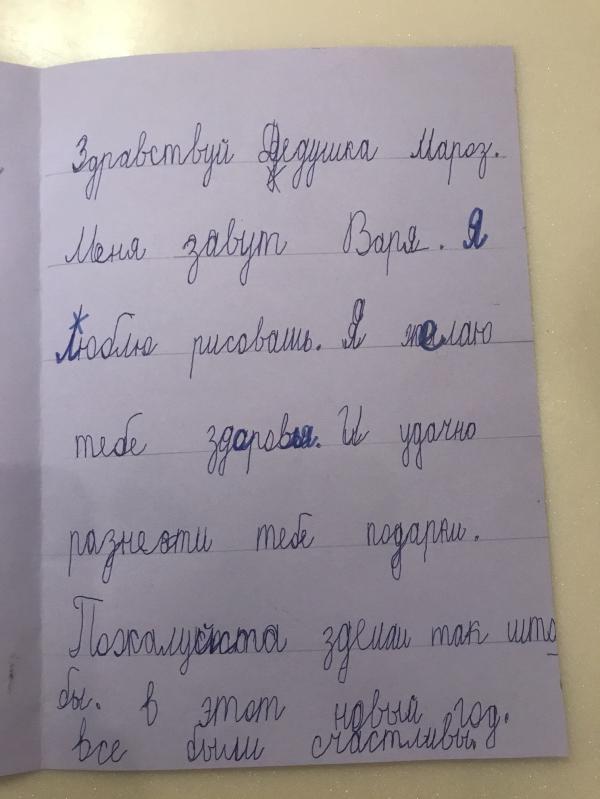 Здравствуй Дедушка Мароз.
Меня завут Варя. Я
люблю рисовать. Я желаю
тебе здаровья. И удачно
разнести тебе подарки.
Пожалуйста зделай так што
бы. в этот новый год.
все были счастливы.